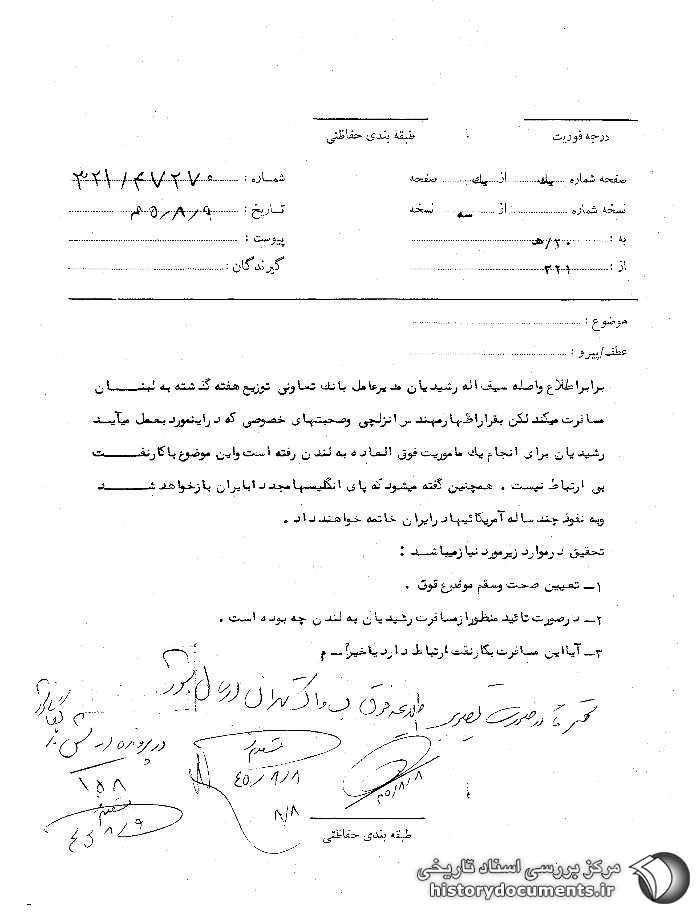 درجه فوریت
طبقه بندی حفاظتی
صفحه شماره يك از يك صفحه
شماره : ۳۲۱/۴۷۲۷۰
نسخه شماره از سه نسخه
تاریخ : ۴۵/۸/۹
به : ۲۰/ه‍
پیوست :
از : ۳۲۱
گیرندگان :
موضوع :
عطف/پیرو :
برابر اطلاع واصله سیف اله رشیدیان مدیرعامل بانك تعاونی توزیع هفته گذشته به لبنـــان
مسافرت میکند لکن بقرار اظهار مهندس انزلچی وصحبتهای خصوصی که دراینمورد بعمل میآیــد
رشیدیان برای انجام یك ماموریت فوق العاده به لندن رفته است واین موضوع باکارنفـــت
بی ارتباط نیست . همچنین گفته میشود که پای انگلیسها مجددا بایران بازخواهد شـــد
وبه نفوذ چند ساله آمریکائیها درایران خاتمه خواهند داد .
تحقیق درموارد زیر مورد نیاز میباشـد :
۱ـ تعیین صحت وسقم موضوع فوق .
۲ـ درصورت تائید منظور از مسافرت رشیدیان به لندن چه بوده است .
۳ـ آیا این مسافرت بکارنفت ارتباط دارد یاخیر؟ ـ م
در صورت تصویب فوق ساواک تهران ارسال شود
در پرونده
۱۵۸
۴۵/۸/۸
۸/۸
۴۵/۸/۸
۴۵ ۸/۹
طبقه بندی حفاظتی
مرکز بررسی اسناد تاریخی
historydocuments.ir